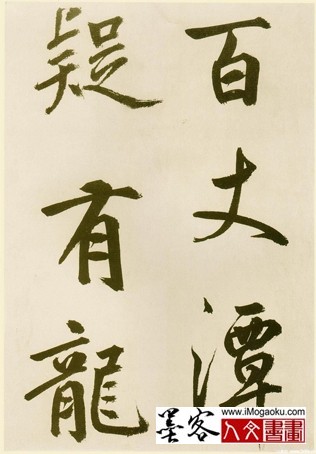 百丈潭
疑有龍
墨客
www.iMogaoku.com
人文書畫